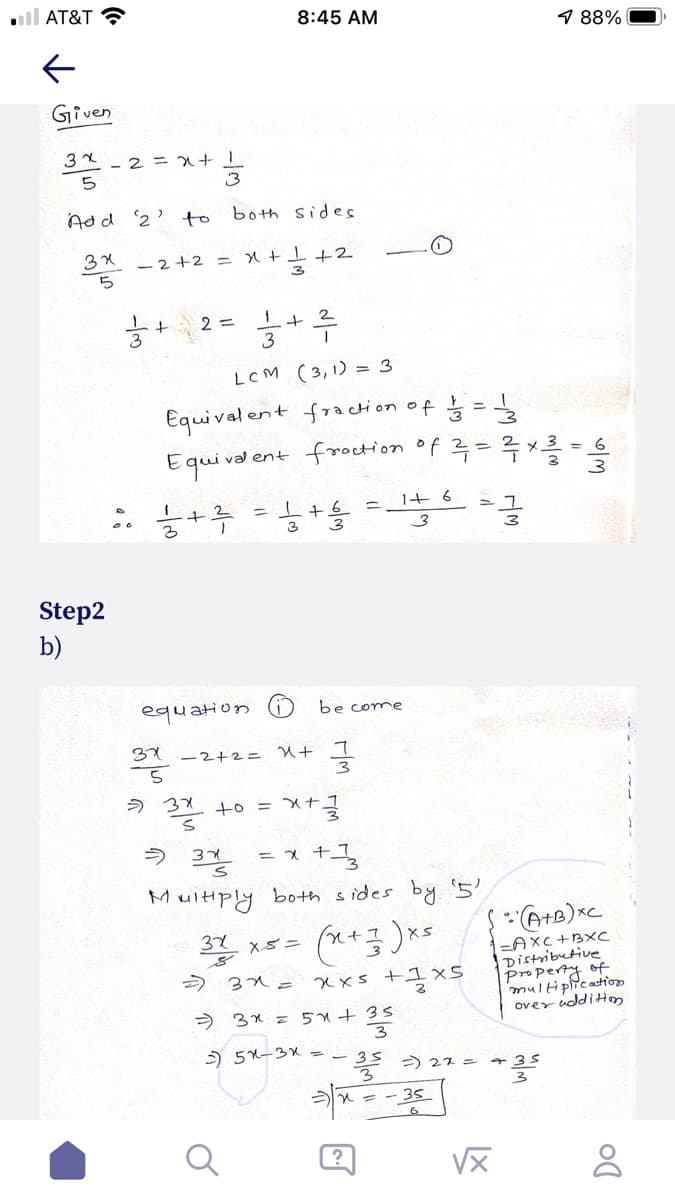 AT&T 8:45 AM 88%
Given
3x/5 - 2 = x + 1/3
Add '2' to both sides
3x/5 - 2 + 2 = x + 1/3 + 2 — ①
1/3 + 2 = 1/3 + 2/1
LCM (3,1) = 3
Equivalent fraction of 1/3 = 1/3
Equivalent fraction of 2/1 = 2/1 × 3/3 = 6/3
∴ 1/3 + 2/1 = 1/3 + 6/3 = 1+6/3 = 7/3
Step2
b)
equation ① become
3x/5 - 2 + 2 = x + 7/3
⇒ 3x/5 + 0 = x + 7/3
⇒ 3x/5 = x + 7/3
Multiply both sides by '5'
3x/5 × 5 = (x + 7/3) × 5
{∵ (A+B)×C
=A×C+B×C
Distributive
property of
multiplication
over addition
⇒ 3x = x×5 + 7/3 × 5
⇒ 3x = 5x + 35/3
⇒ 5x-3x = - 35/3 ⇒ 2x = - 35/3
⇒ x = - 35/6
? √x